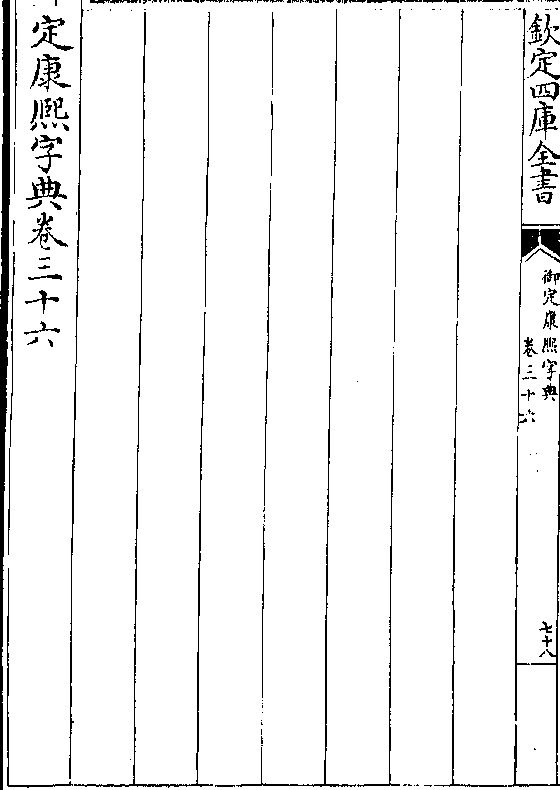 欽定四庫全書
御定康熙字典
卷三十六
七十八
定康熙字典卷三十六